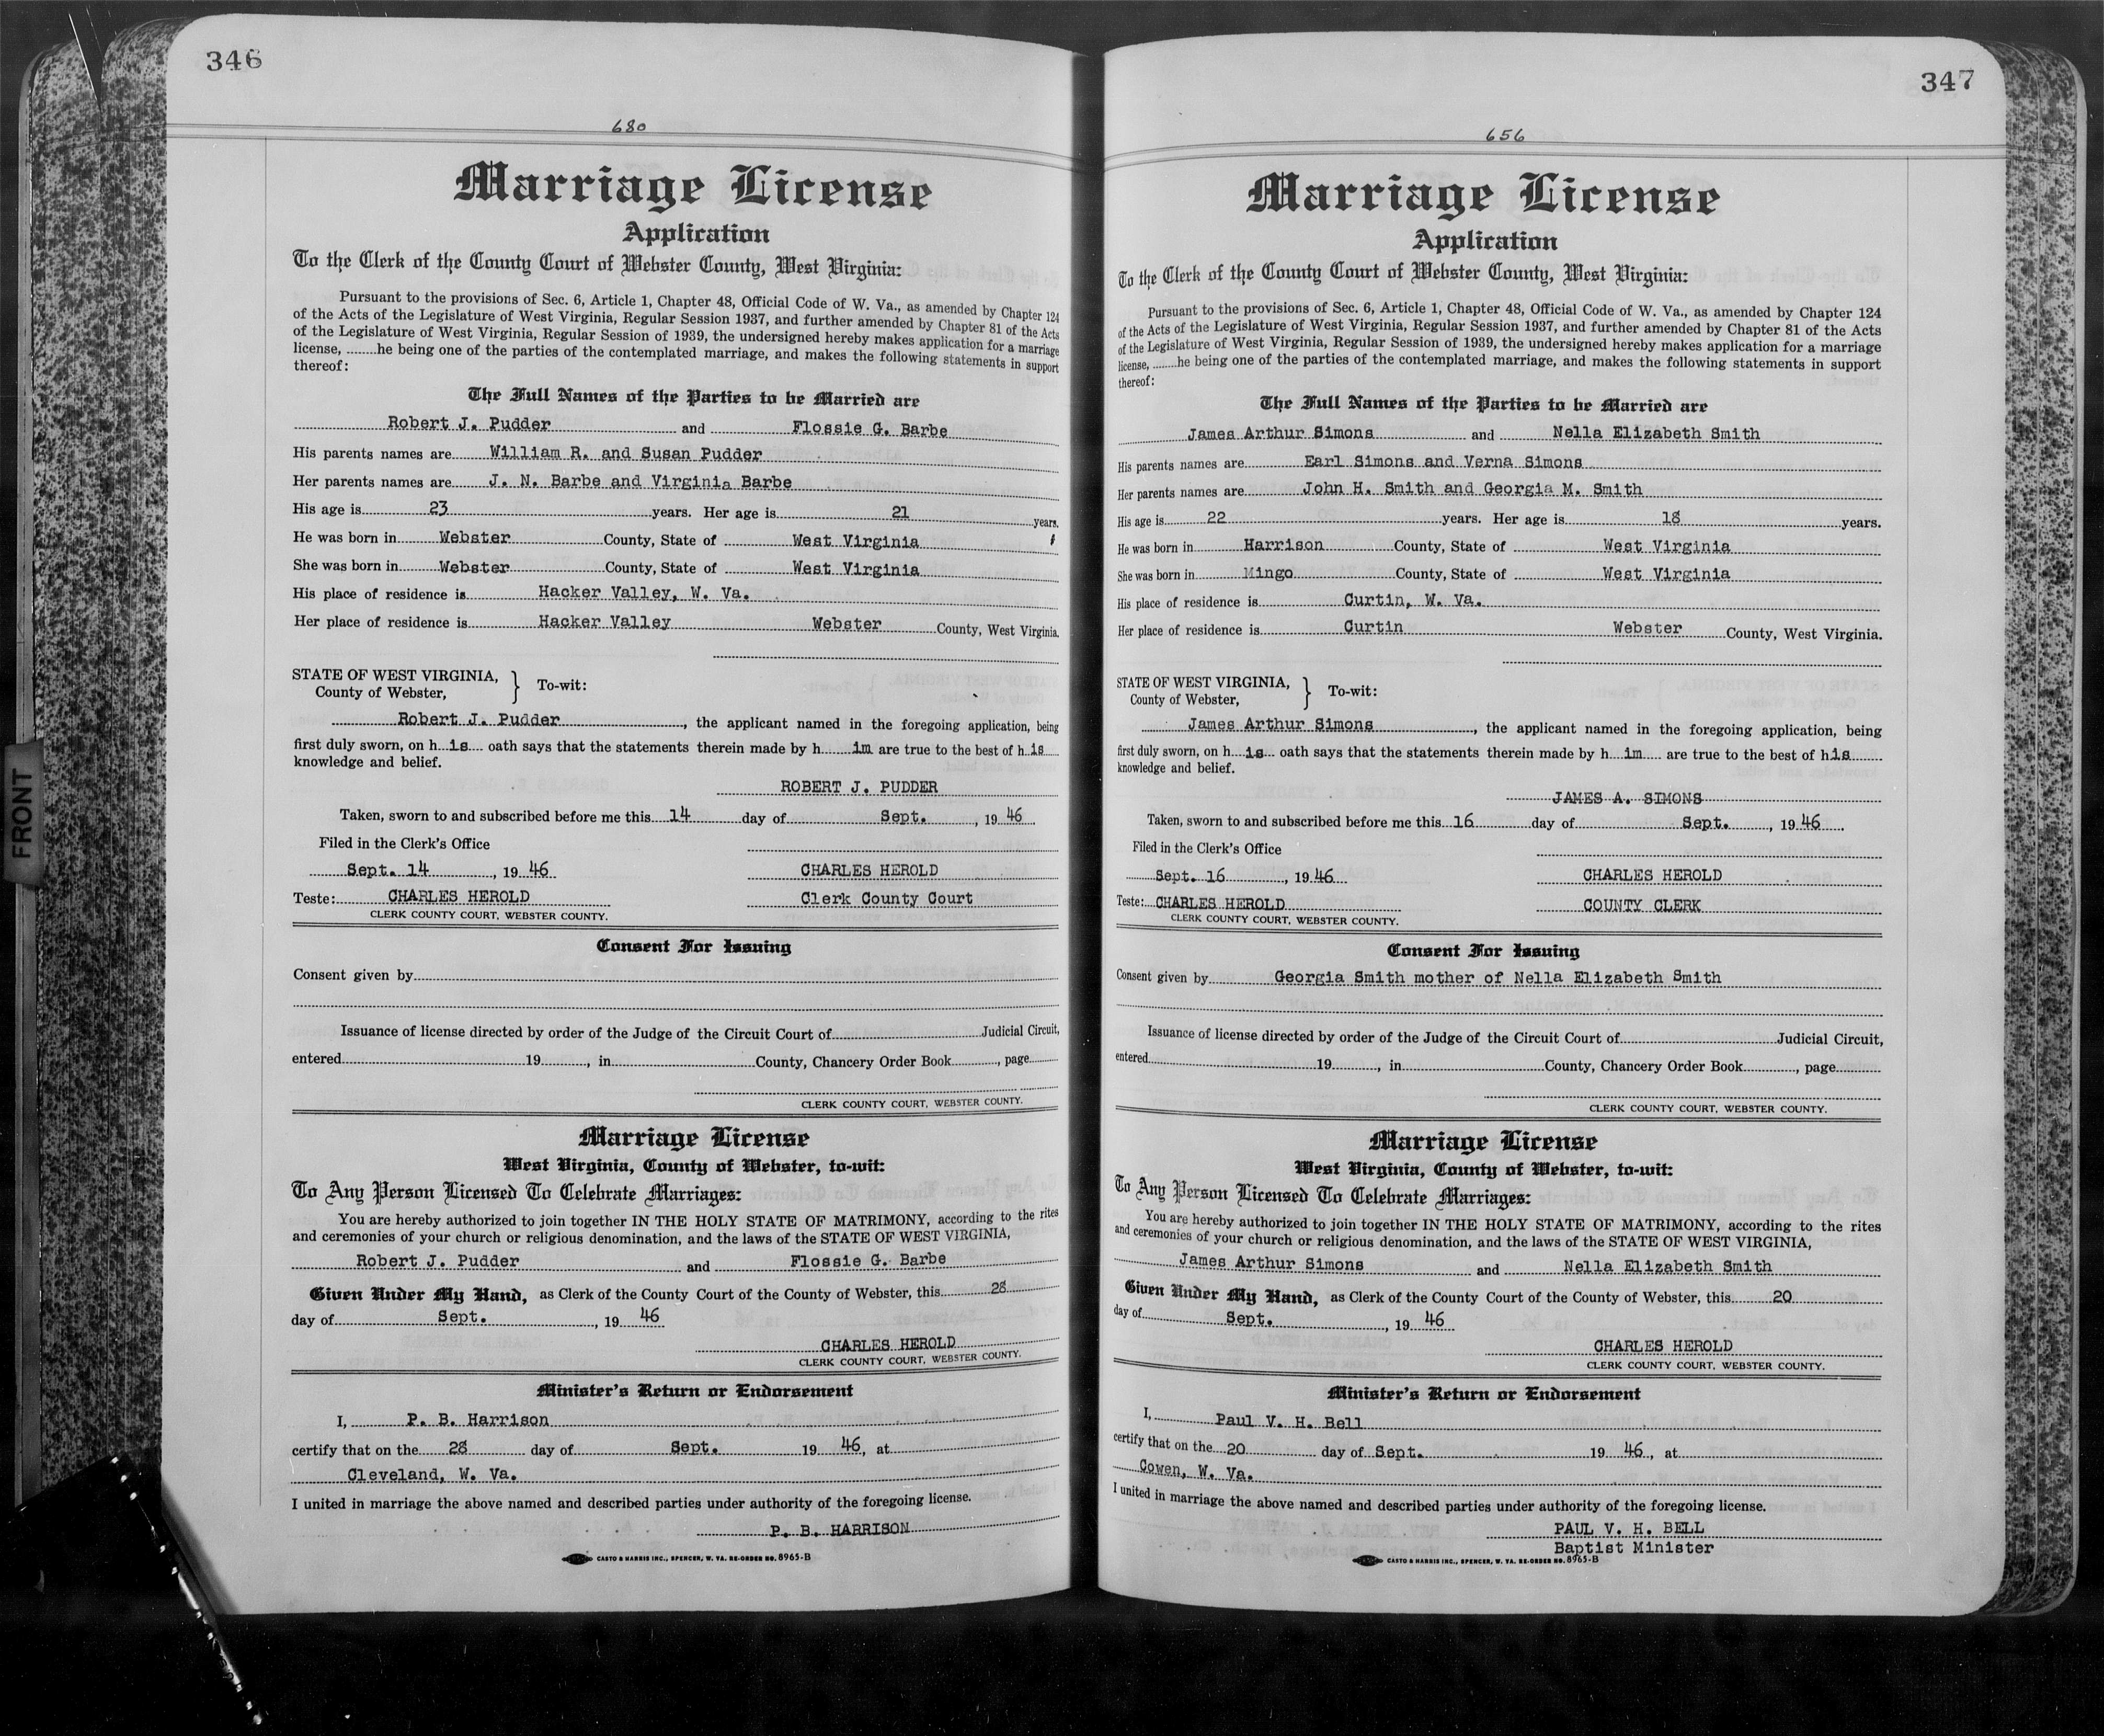 346
680
Marriage License
Application
To the Clerk of the County Court of Webster County, West Virginia:
Pursuant to the provisions of Sec. 6, Article 1, Chapter 48, Official Code of W. Va., as amended by Chapter 124
of the Acts of the Legislature of West Virginia, Regular Session 1937, and further amended by Chapter 81 of the Acts
of the Legislature of West Virginia, Regular Session of 1939, the undersigned hereby makes application for a marriage
license, ........he being one of the parties of the contemplated marriage, and makes the following statements in support
thereof:
The Full Names of the Parties to be Married are
Robert J. Pudder and Flossie G. Barbe
His parents names are William R. and Susan Pudder
Her parents names are J. N. Barbe and Virginia Barbe
His age is 23 years. Her age is 21 years.
He was born in Webster County, State of West Virginia
She was born in Webster County, State of West Virginia
His place of residence is Hacker Valley, W. Va.
Her place of residence is Hacker Valley Webster County, West Virginia.
STATE OF WEST VIRGINIA,
County of Webster, } To-wit:
Robert J. Pudder, the applicant named in the foregoing application, being
first duly sworn, on h is oath says that the statements therein made by h im are true to the best of h is
knowledge and belief.
ROBERT J. PUDDER
Taken, sworn to and subscribed before me this 14 day of Sept., 19 46
Filed in the Clerk's Office
Sept. 14, 19 46 CHARLES HEROLD
Teste: CHARLES HEROLD Clerk County Court
CLERK COUNTY COURT, WEBSTER COUNTY.
Consent For Issuing
Consent given by
Issuance of license directed by order of the Judge of the Circuit Court of Judicial Circuit,
entered 19, in County, Chancery Order Book, page
CLERK COUNTY COURT, WEBSTER COUNTY.
Marriage License
West Virginia, County of Webster, to-wit:
To Any Person Licensed To Celebrate Marriages:
You are hereby authorized to join together IN THE HOLY STATE OF MATRIMONY, according to the rites
and ceremonies of your church or religious denomination, and the laws of the STATE OF WEST VIRGINIA,
Robert J. Pudder and Flossie G. Barbe
Given Under My Hand, as Clerk of the County Court of the County of Webster, this 28
day of Sept., 19 46
CHARLES HEROLD
CLERK COUNTY COURT, WEBSTER COUNTY.
Minister's Return or Endorsement
I, P. B. Harrison
certify that on the 28 day of Sept. 19 46, at
Cleveland, W. Va.
I united in marriage the above named and described parties under authority of the foregoing license.
P. B. HARRISON
CASTO & HARRIS INC., SPENCER, W. VA. RE-ORDER NO. 8965-B
347
656
Marriage License
Application
To the Clerk of the County Court of Webster County, West Virginia:
Pursuant to the provisions of Sec. 6, Article 1, Chapter 48, Official Code of W. Va., as amended by Chapter 124
of the Acts of the Legislature of West Virginia, Regular Session 1937, and further amended by Chapter 81 of the Acts
of the Legislature of West Virginia, Regular Session of 1939, the undersigned hereby makes application for a marriage
license, ........he being one of the parties of the contemplated marriage, and makes the following statements in support
thereof:
The Full Names of the Parties to be Married are
James Arthur Simons and Nella Elizabeth Smith
His parents names are Earl Simons and Verna Simons
Her parents names are John H. Smith and Georgia M. Smith
His age is 22 years. Her age is 18 years.
He was born in Harrison County, State of West Virginia
She was born in Mingo County, State of West Virginia
His place of residence is Curtin, W. Va.
Her place of residence is Curtin Webster County, West Virginia.
STATE OF WEST VIRGINIA,
County of Webster, } To-wit:
James Arthur Simons, the applicant named in the foregoing application, being
first duly sworn, on h is oath says that the statements therein made by h im are true to the best of his
knowledge and belief.
JAMES A. SIMONS
Taken, sworn to and subscribed before me this 16 day of Sept., 19 46
Filed in the Clerk's Office
Sept. 16, 19 46 CHARLES HEROLD
Teste: CHARLES HEROLD COUNTY CLERK
CLERK COUNTY COURT, WEBSTER COUNTY.
Consent For Issuing
Consent given by Georgia Smith mother of Nella Elizabeth Smith
Issuance of license directed by order of the Judge of the Circuit Court of Judicial Circuit,
entered 19, in County, Chancery Order Book, page
CLERK COUNTY COURT, WEBSTER COUNTY.
Marriage License
West Virginia, County of Webster, to-wit:
To Any Person Licensed To Celebrate Marriages:
You are hereby authorized to join together IN THE HOLY STATE OF MATRIMONY, according to the rites
and ceremonies of your church or religious denomination, and the laws of the STATE OF WEST VIRGINIA,
James Arthur Simons and Nella Elizabeth Smith
Given Under My Hand, as Clerk of the County Court of the County of Webster, this 20
day of Sept., 19 46
CHARLES HEROLD
CLERK COUNTY COURT, WEBSTER COUNTY.
Minister's Return or Endorsement
I, Paul V. H. Bell
certify that on the 20 day of Sept. 19 46, at
Cowen, W. Va.
I united in marriage the above named and described parties under authority of the foregoing license.
PAUL V. H. BELL
Baptist Minister
CASTO & HARRIS INC., SPENCER, W. VA. RE-ORDER NO. 8965-B
FRONT